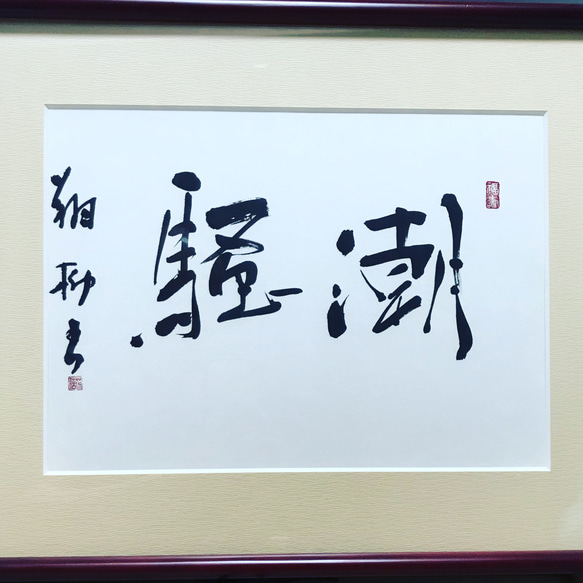 潮騒
翔柳書